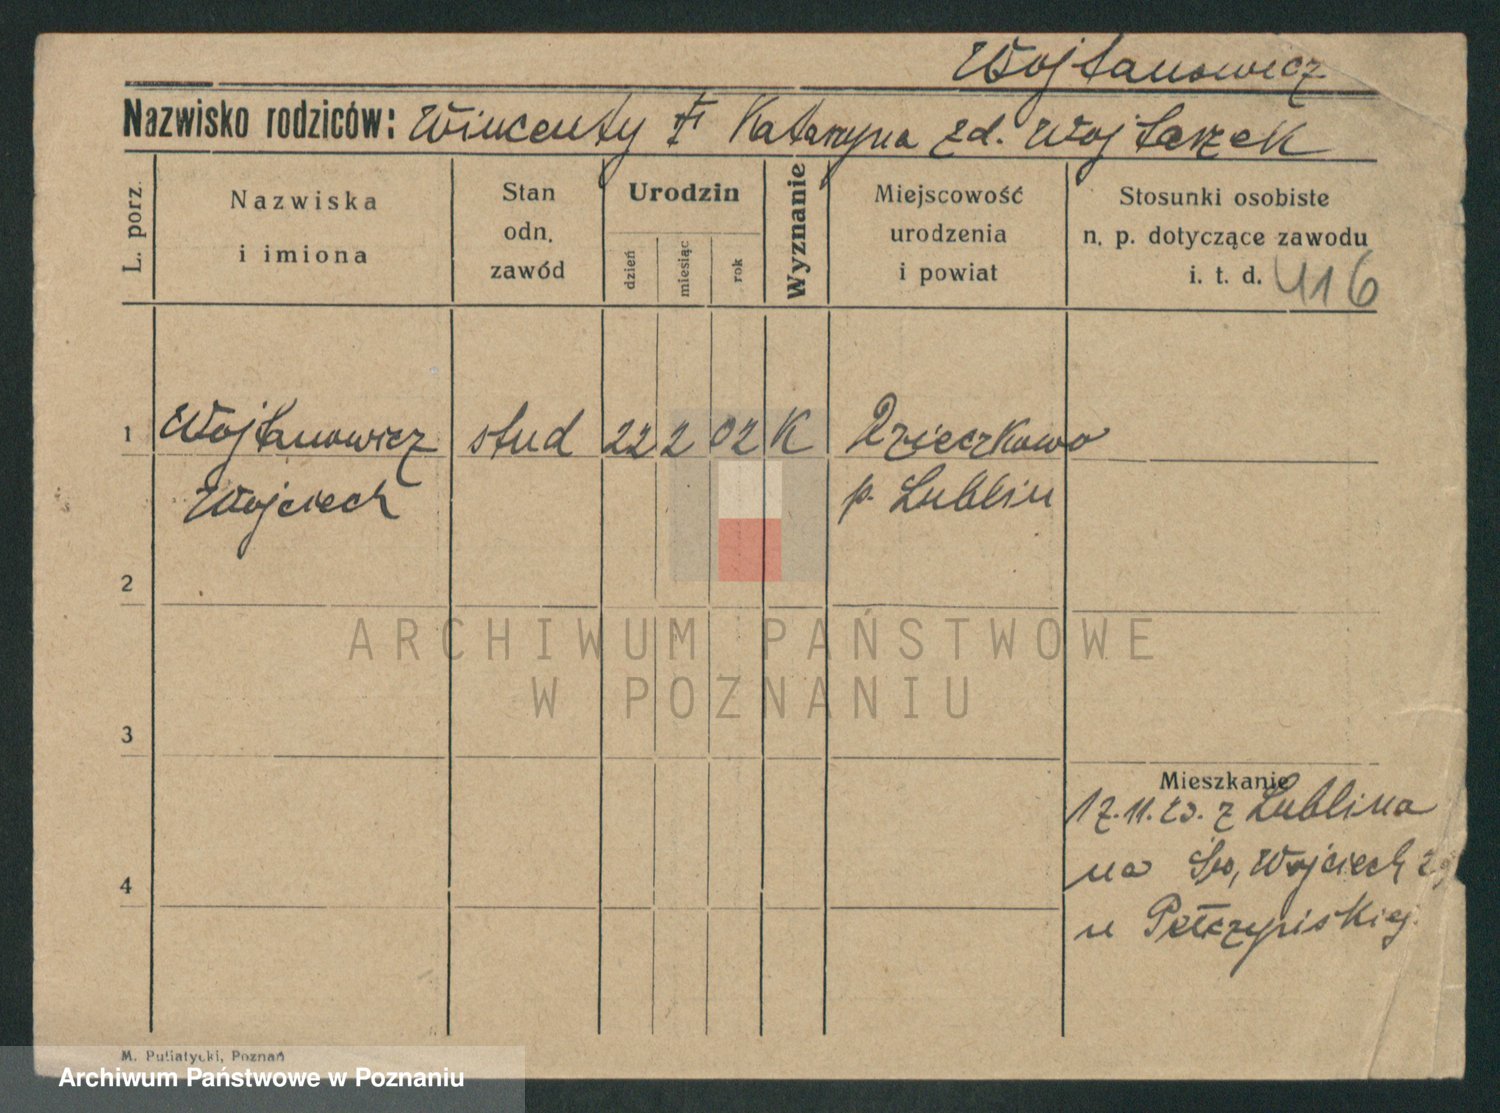 Wojtanowicz
Nazwisko rodziców: Wincenty Katarzyna zd. Wojtaszek
L. porz.
Nazwiska i imiona
Stan odn. zawód
Urodzin
dzień miesiąc rok
Wyznanie
Miejscowość urodzenia i powiat
Stosunki osobiste n. p. dotyczące zawodu i. t. d. 416
1 Wojtanowicz stud 22 2 02 K
Wojciech p. Lublin
2
ARCHIWUM PAŃSTWOWE
W POZNANIU
3
Mieszkanie
17.11.23. z Lublina
na Św. Wojciech
u Pełczyńskiej.
4
M. Putiatycki, Poznań
Archiwum Państwowe w Poznaniu